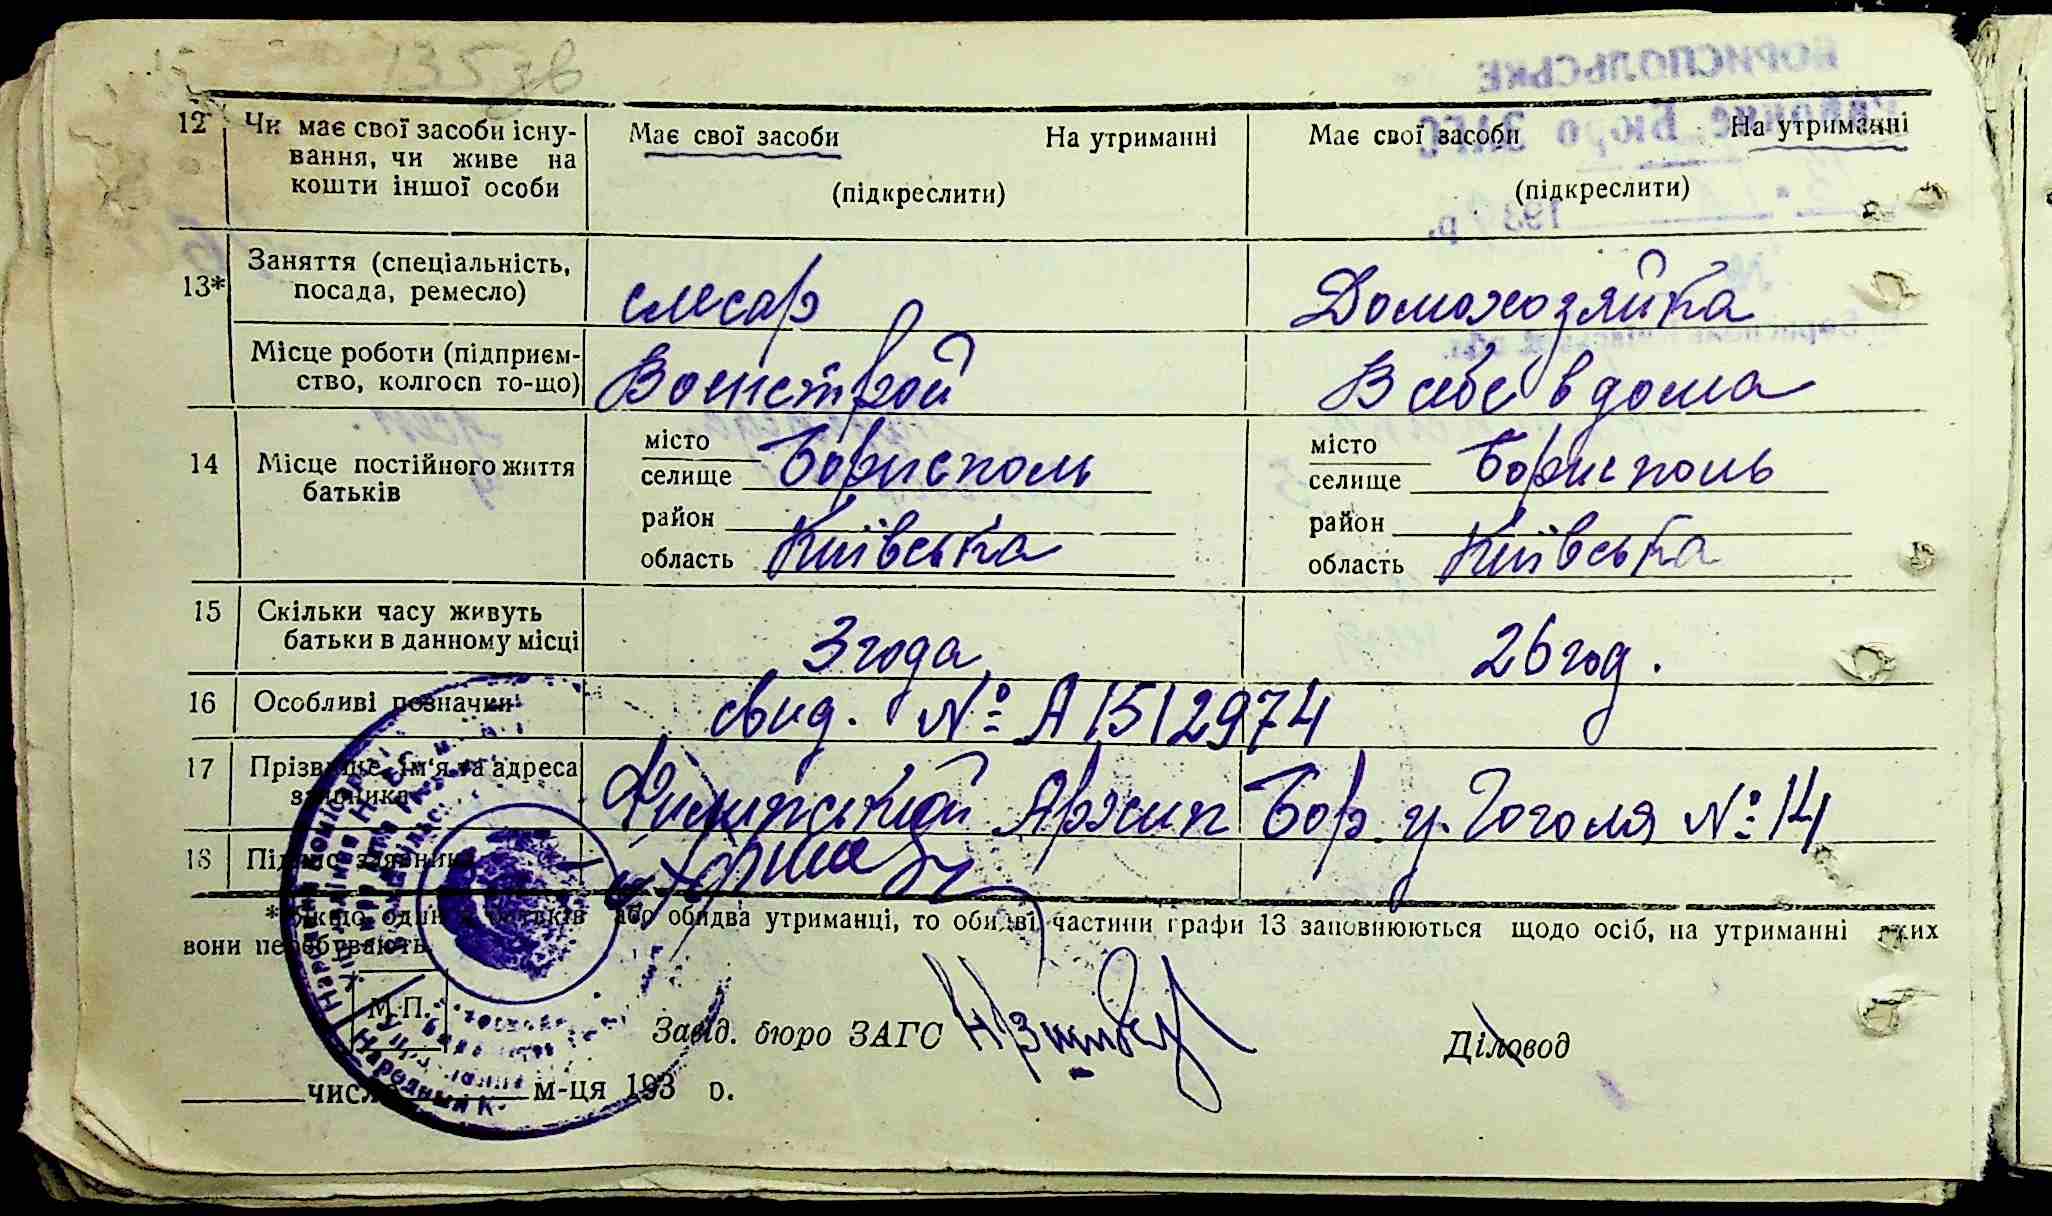 135зв
12 Чи має свої засоби існу- Має свої засоби На утриманні Має свої засоби На утриманні
вання, чи живе на
кошти іншої особи (підкреслити) (підкреслити)
13* Заняття (спеціальність,
посада, ремесло) слесар Домохозяйка
Місце роботи (підприєм-
ство, колгосп то-що) Военстрой В себе в дома
14 Місце постійного життя
батьків
місто
селище Борисполь місто
селище Борисполь
район район
область Київська область Київська
15 Скільки часу живуть
батьки в данному місці 3 года 26 год.
16 Особливі позначки свид. № А 1512974
17 Прізвище, ім'я та адреса
заявника Архип Бор. у. Гоголя № 14
18 Підпис заявника
* Якщо один з батьків або обидва утриманці, то обидві частини графи 13 заповнюються щодо осіб, на утриманні яких
вони перебувають.
М.П.
Завід. бюро ЗАГС Діловод
число м-ця 193 р.
БОРИСПОЛЬСЬКЕ
Бюро ЗАГС
193 р.